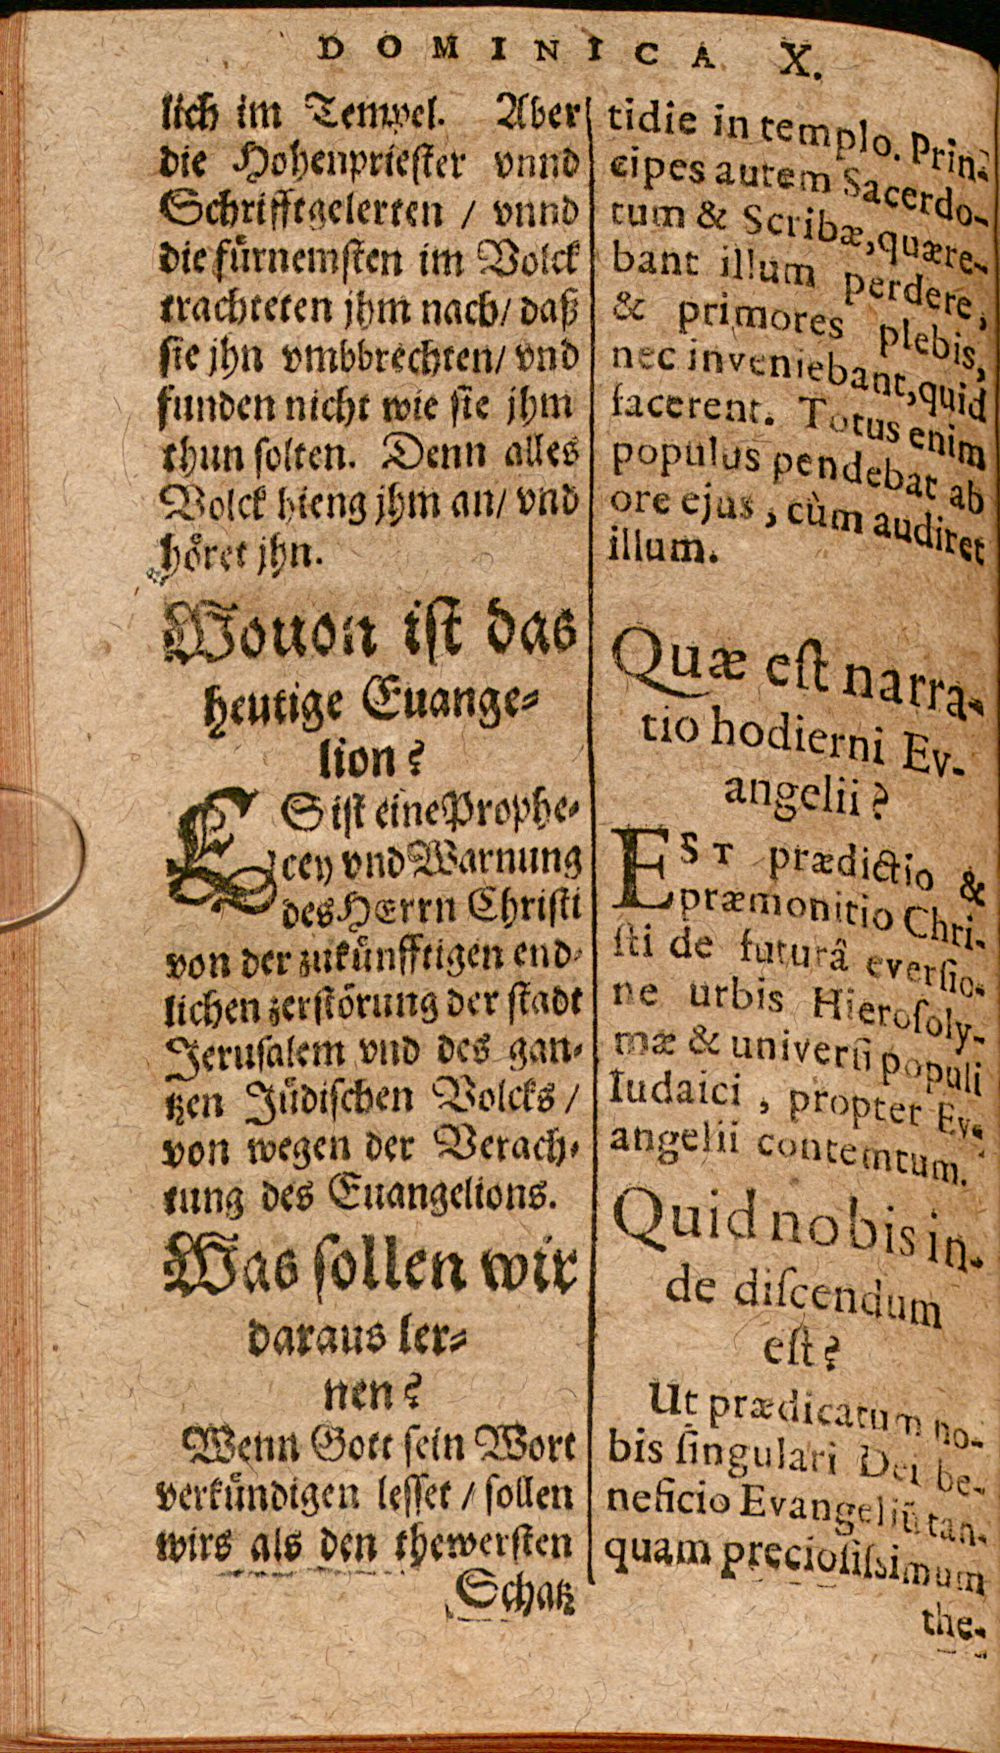 DOMINICA X.
lich im Tempel. Aber
die Hohenpriester vnnd
Schrifftgelerten / vnnd
die fürnemsten im Volck
trachteten jhm nach/ daß
sie jhn vmbbrechten/ vnd
funden nicht wie sie jhm
thun solten. Denn alles
Volck hieng jhm an/ vnd
hoͤret jhn.
Wouon ist das
heutige Euange⸗
lion?
ES ist eine Prophe⸗
cey vnd Warnung
des HErrn Christi
von der zukuͤnfftigen end⸗
lichen zerstörung der stadt
Jerusalem vnd des gan⸗
tzen Juͤdischen Volcks /
von wegen der Verach⸗
tung des Euangelions.
Was sollen wir
daraus ler⸗
nen?
Wenn Gott sein Wort
verkuͤndigen lesset / sollen
wirs als den thewersten
Schatz
tidie in templo. Prin-
cipes autem Sacerdo-
tum & Scribæ, quære-
bant illum perdere,
& primores plebis,
nec inveniebant, quid
facerent. Totus enim
populus pendebat ab
ore ejus, cùm audiret
illum.
Quæ eſt narra-
tio hodierni Ev-
angelii?
EST prædictio &
præmonitio Chri-
ſti de futurâ everſio-
ne urbis Hieroſoly-
mæ & univerſi populi
Iudaici, propter Ev-
angelii contemtum.
Quid nobis in-
de diſcendum
eſt?
Ut prædicatum no-
bis ſingulari Dei be-
neficio Evangeliū tan-
quam precioſiſsimum
the-